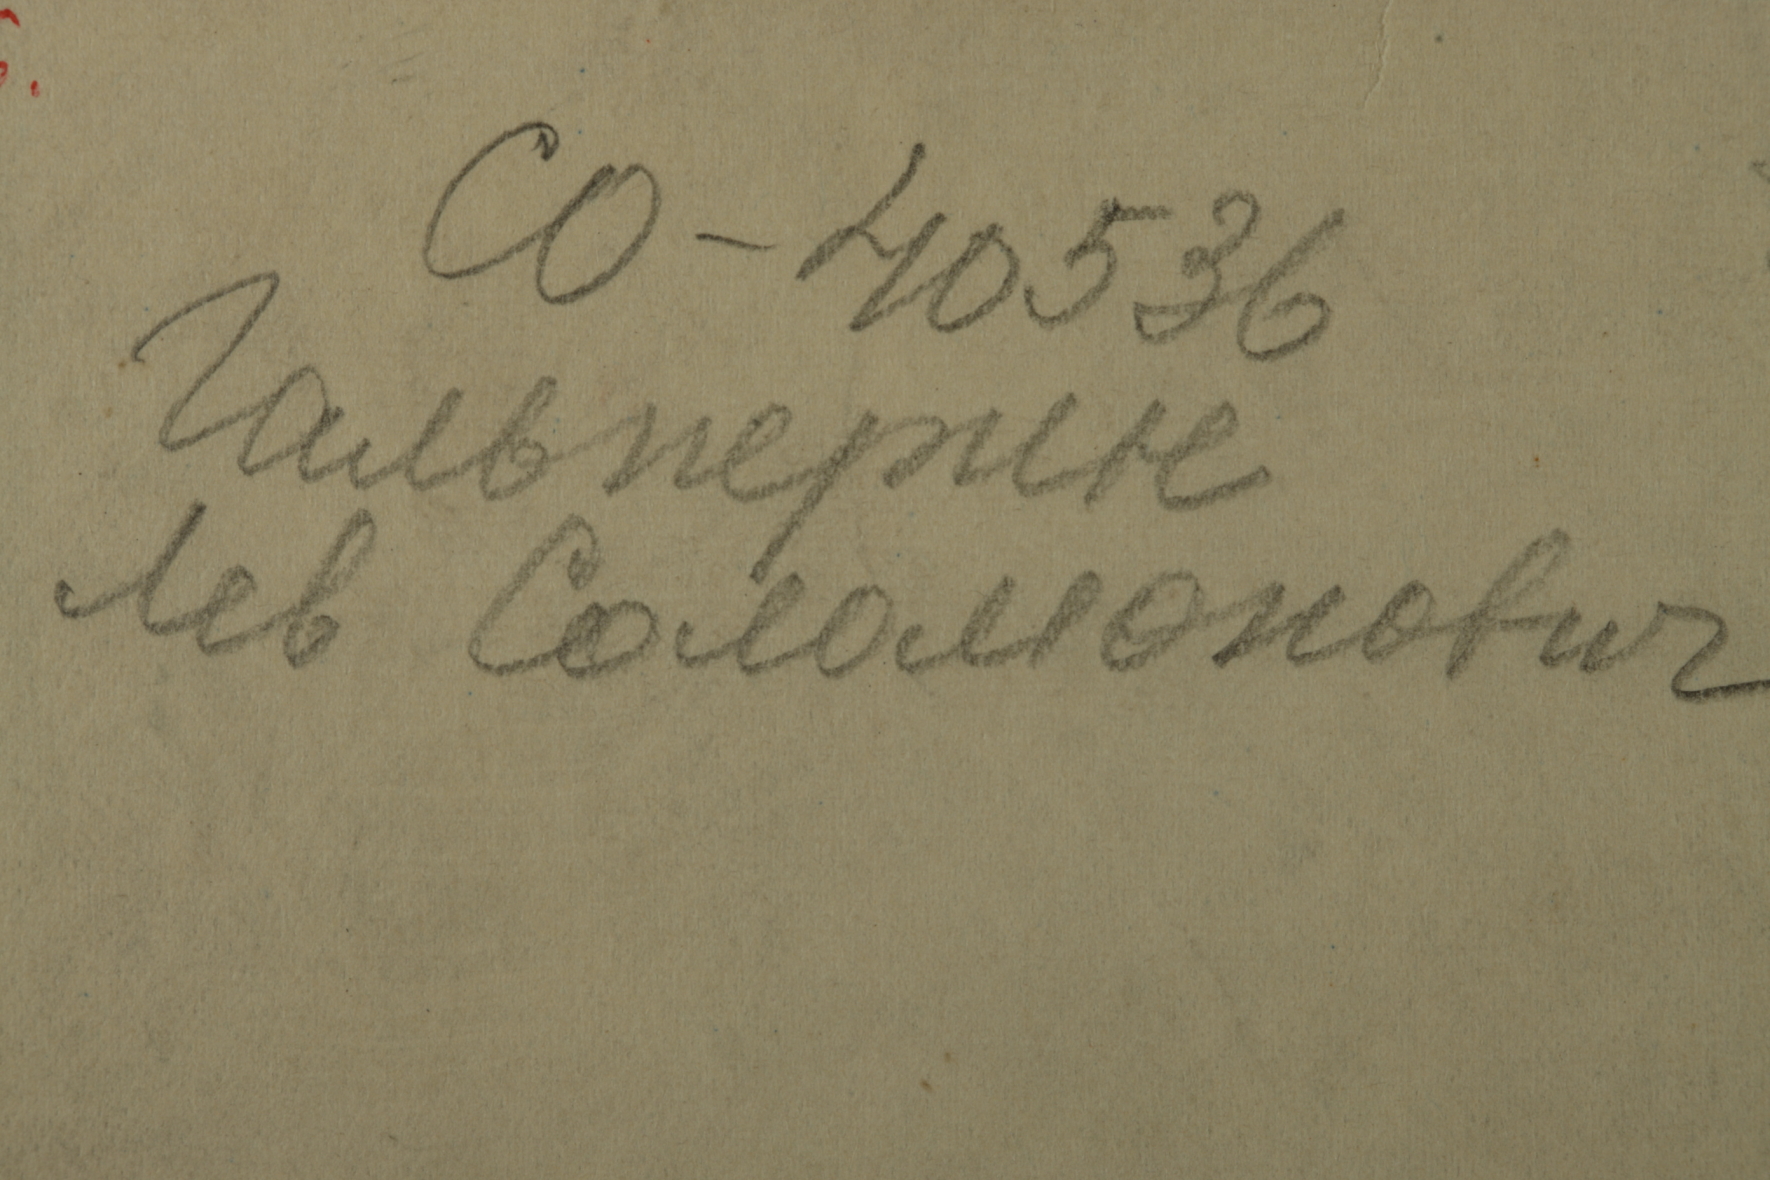 СО-40536
Гальперин
Лев Соломонович